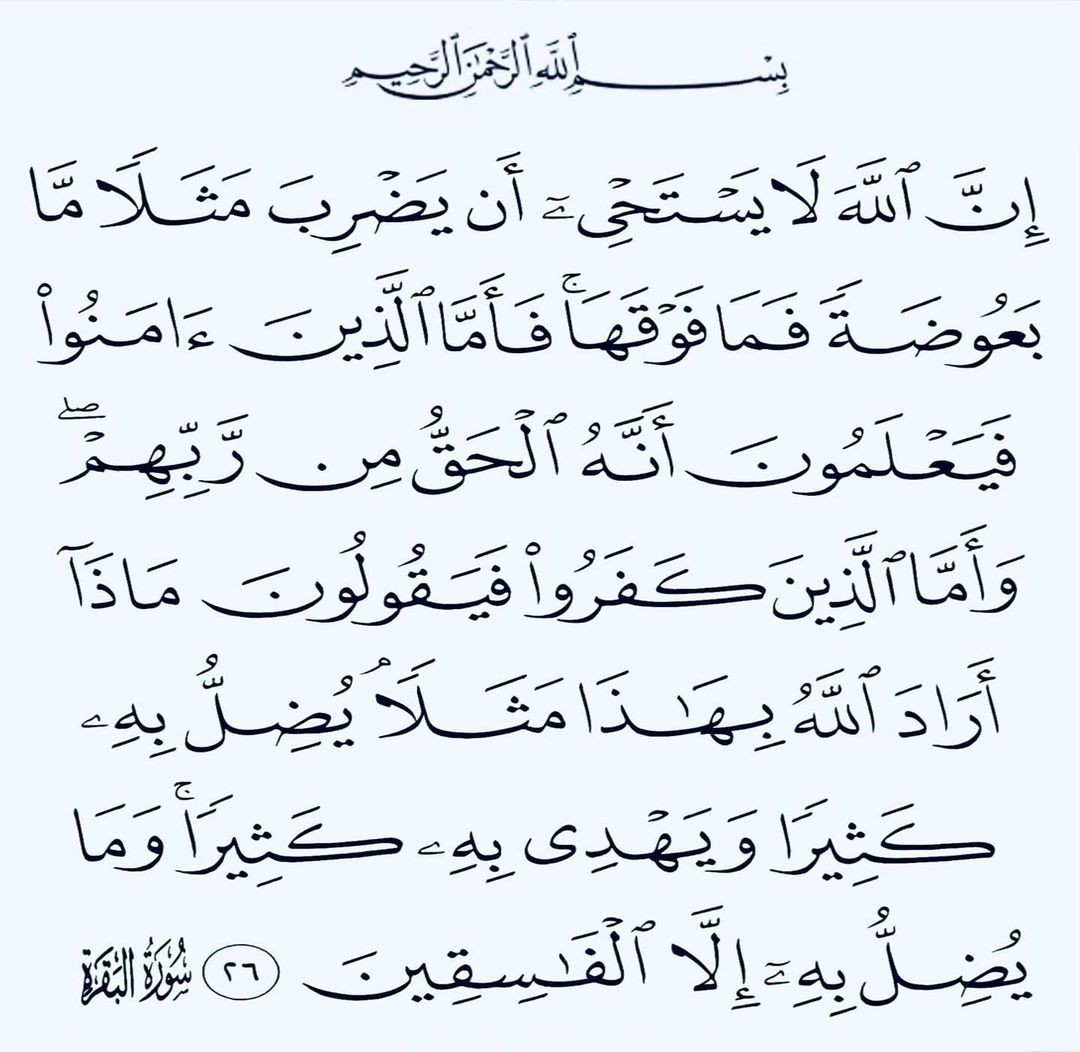 بِسْمِ ٱللَّهِ ٱلرَّحْمَٰنِ ٱلرَّحِيمِ
إِنَّ ٱللَّهَ لَا يَسْتَحْىِۦٓ أَن يَضْرِبَ مَثَلًا مَّا
بَعُوضَةً فَمَا فَوْقَهَا ۚ فَأَمَّا ٱلَّذِينَ ءَامَنُوا۟
فَيَعْلَمُونَ أَنَّهُ ٱلْحَقُّ مِن رَّبِّهِمْ ۖ
وَأَمَّا ٱلَّذِينَ كَفَرُوا۟ فَيَقُولُونَ مَاذَآ
أَرَادَ ٱللَّهُ بِهَٰذَا مَثَلًا ۘ يُضِلُّ بِهِۦ
كَثِيرًا وَيَهْدِى بِهِۦ كَثِيرًا ۚ وَمَا
يُضِلُّ بِهِۦٓ إِلَّا ٱلْفَٰسِقِينَ ٢٦ سُورَةُ البَقَرَةِ